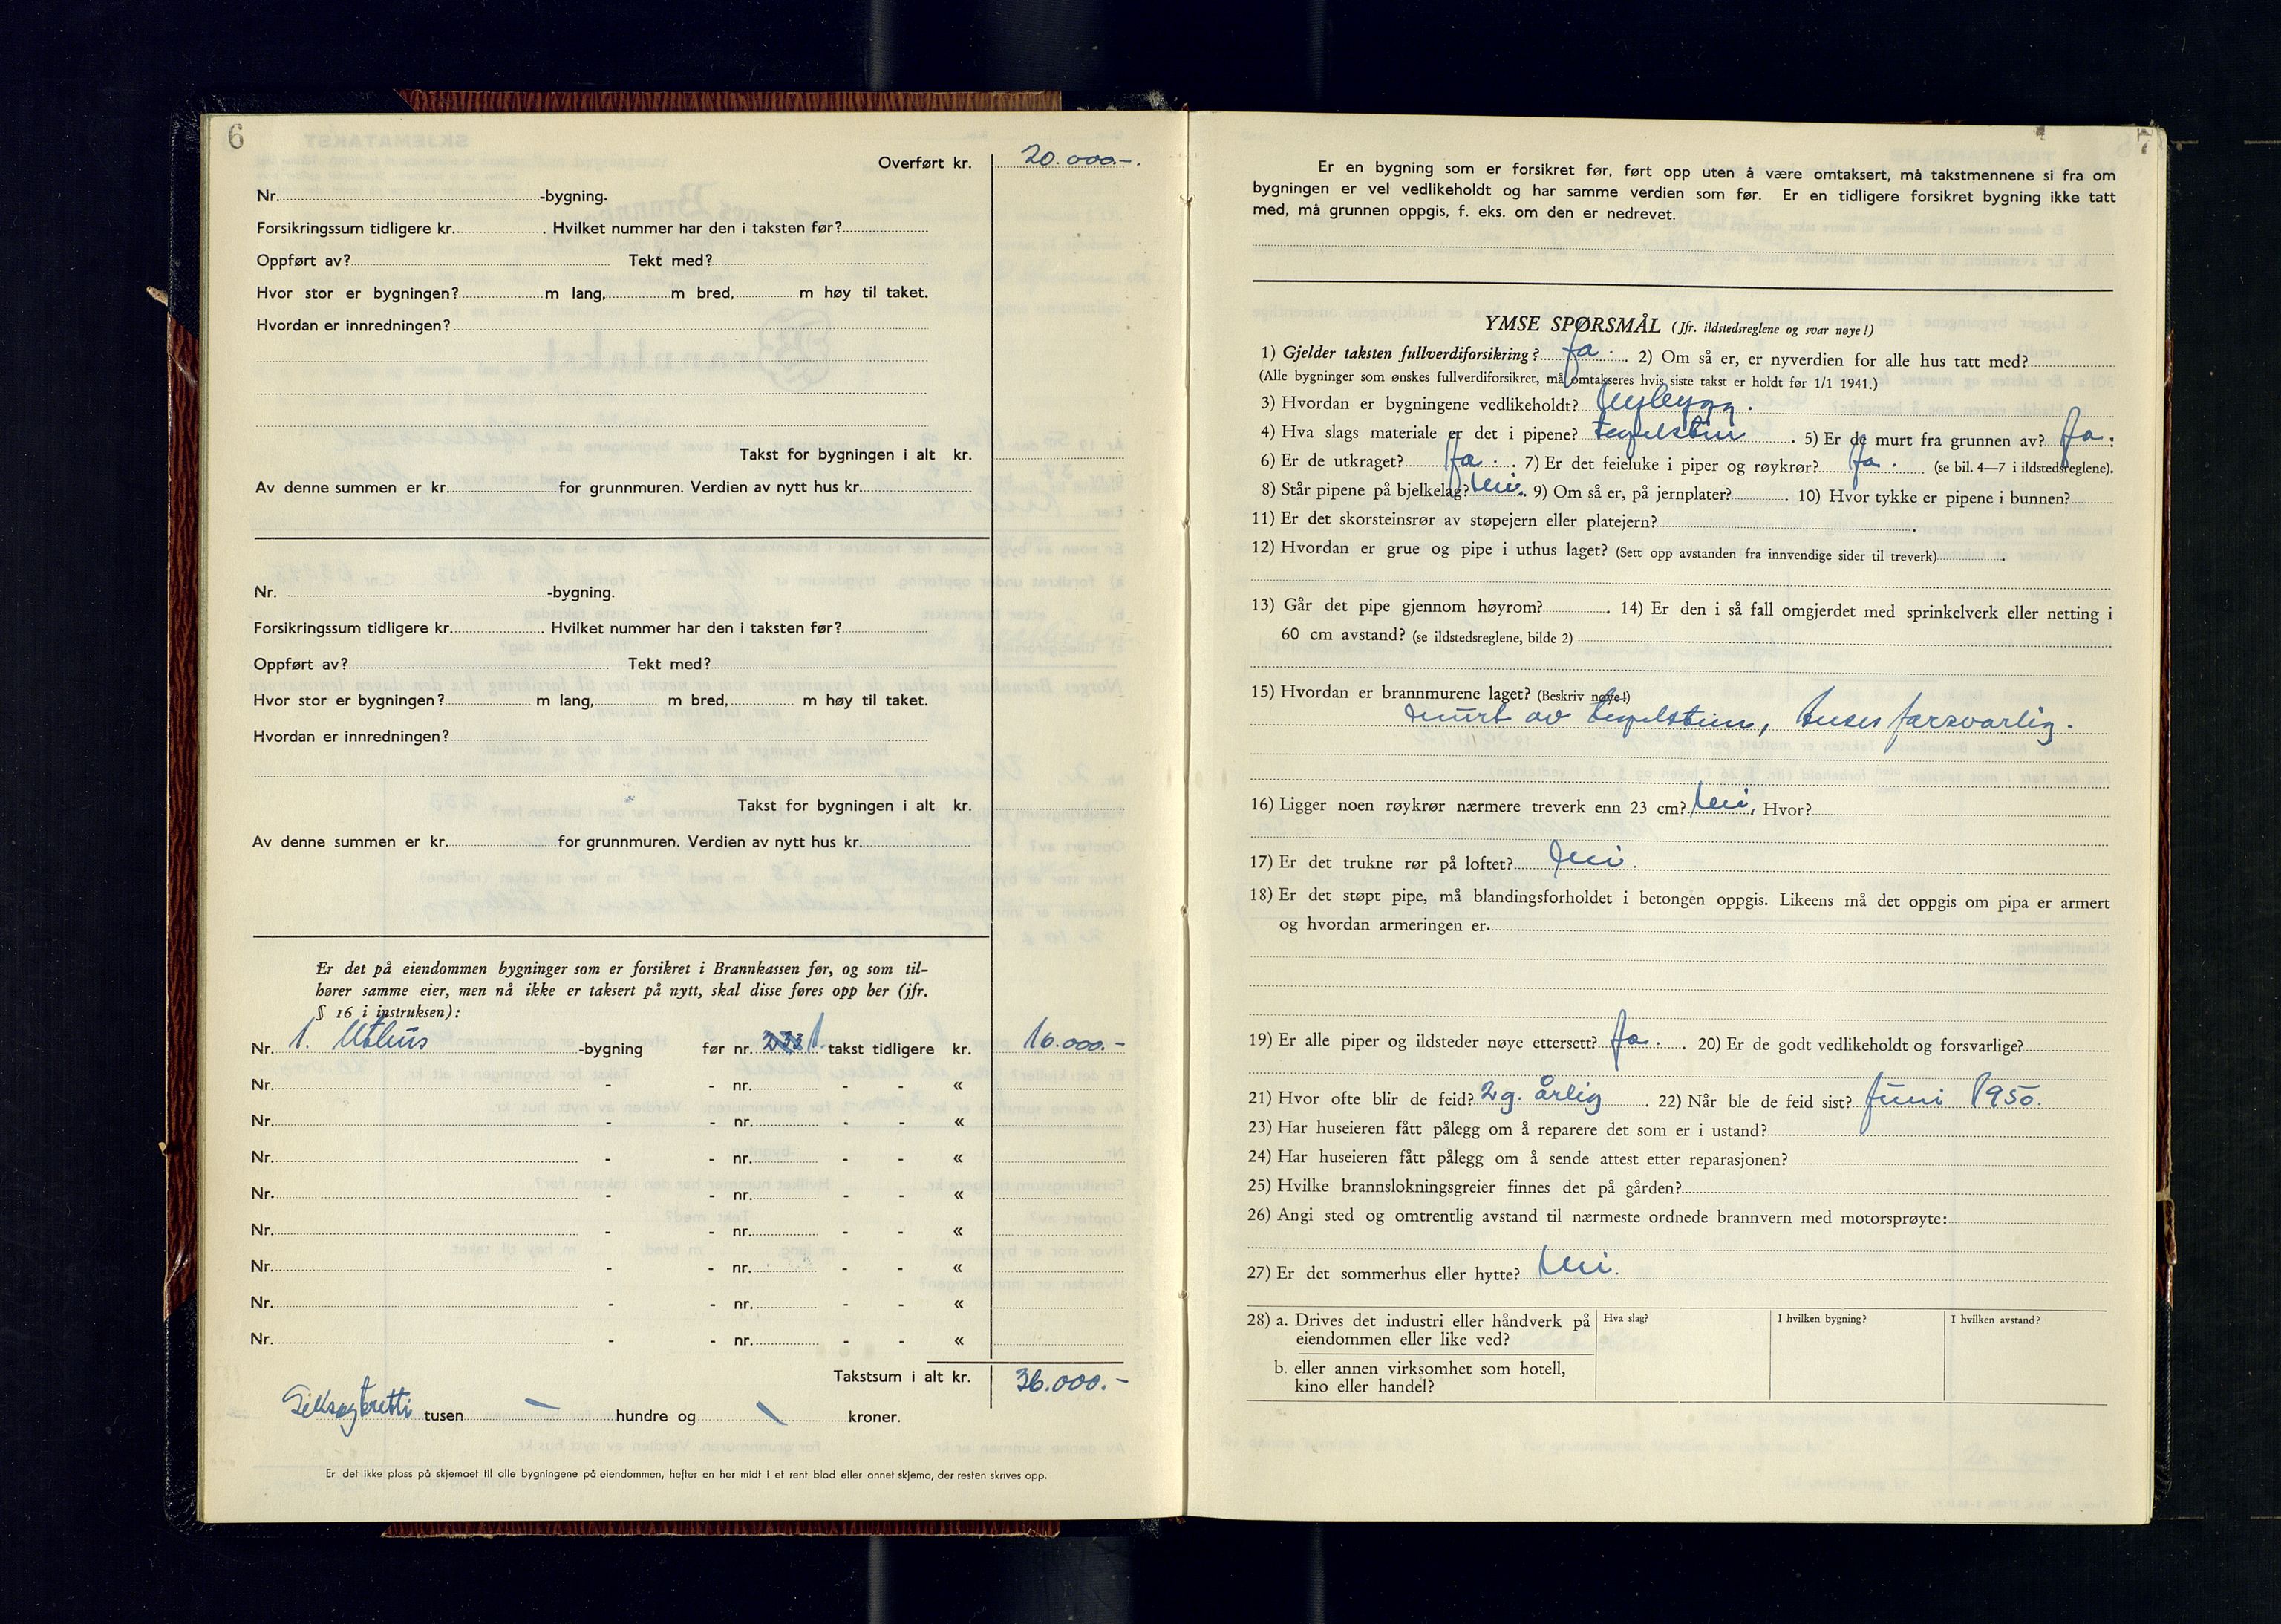 6
Overført kr. 20.000.-
Nr. -bygning.
Forsikringssum tidligere kr. . Hvilket nummer har den i taksten før?
Oppført av? Tekt med?
Hvor stor er bygningen? m lang, m bred, m høy til taket.
Hvordan er innredningen?
Takst for bygningen i alt kr.
Av denne summen er kr. for grunnmuren. Verdien av nytt hus kr.
Nr. -bygning.
Forsikringssum tidligere kr. . Hvilket nummer har den i taksten før?
Oppført av? Tekt med?
Hvor stor er bygningen? m lang, m bred, m høy til taket.
Hvordan er innredningen?
Takst for bygningen i alt kr.
Av denne summen er kr. for grunnmuren. Verdien av nytt hus kr.
Er det på eiendommen bygninger som er forsikret i Brannkassen før, og som til-
hører samme eier, men nå ikke er taksert på nytt, skal disse føres opp her (jfr.
§ 16 i instruksen):
Nr. 1. Uthus -bygning før nr. 233 1. takst tidligere kr. 16.000.-
Nr. - - nr. - - «
Nr. - - nr. - - «
Nr. - - nr. - - «
Nr. - - nr. - - «
Nr. - - nr. - - «
Nr. - - nr. - - «
Nr. - - nr. - - «
Nr. - - nr. - - «
Takstsum i alt kr. 36.000.-
Seksogtretti tusen - hundre og - kroner.
Er det ikke plass på skjemaet til alle bygningene på eiendommen, hefter en her midt i et rent blad eller annet skjema, der resten skrives opp.
7
Er en bygning som er forsikret før, ført opp uten å være omtaksert, må takstmennene si fra om
bygningen er vel vedlikeholdt og har samme verdien som før. Er en tidligere forsikret bygning ikke tatt
med, må grunnen oppgis, f. eks. om den er nedrevet.
YMSE SPØRSMÅL (Jfr. ildstedsreglene og svar nøye!)
1) Gjelder taksten fullverdiforsikring? Ja. . 2) Om så er, er nyverdien for alle hus tatt med?
(Alle bygninger som ønskes fullverdiforsikret, må omtakseres hvis siste takst er holdt før 1/1 1941.)
3) Hvordan er bygningene vedlikeholdt? Nybygg.
4) Hva slags materiale er det i pipene? Teglstein . 5) Er de murt fra grunnen av? Ja.
6) Er de utkraget? Ja. . 7) Er det feieluke i piper og røykrør? Ja. (se bil. 4—7 i ildstedsreglene).
8) Står pipene på bjelkelag? Nei. 9) Om så er, på jernplater? . 10) Hvor tykke er pipene i bunnen?
11) Er det skorsteinsrør av støpejern eller platejern? .
12) Hvordan er grue og pipe i uthus laget? (Sett opp avstanden fra innvendige sider til treverk) .
13) Går det pipe gjennom høyrom? . 14) Er den i så fall omgjerdet med sprinkelverk eller netting i
60 cm avstand? (se ildstedsreglene, bilde 2)
15) Hvordan er brannmurene laget? (Beskriv nøye!)
Murt av teglstein, anses forsvarlig.
16) Ligger noen røykrør nærmere treverk enn 23 cm? Nei, Hvor?
17) Er det trukne rør på loftet? Nei.
18) Er det støpt pipe, må blandingsforholdet i betongen oppgis. Likeens må det oppgis om pipa er armert
og hvordan armeringen er.
19) Er alle piper og ildsteder nøye ettersett? Ja. . 20) Er de godt vedlikeholdt og forsvarlige?
21) Hvor ofte blir de feid? 2 g. årlig . 22) Når ble de feid sist? Juni 1950.
23) Har huseieren fått pålegg om å reparere det som er i ustand?
24) Har huseieren fått pålegg om å sende attest etter reparasjonen?
25) Hvilke brannslokningsgreier finnes det på gården?
26) Angi sted og omtrentlig avstand til nærmeste ordnede brannvern med motorsprøyte:
27) Er det sommerhus eller hytte? Nei.
28) a. Drives det industri eller håndverk på eiendommen eller like ved? Hva slag? I hvilken bygning? I hvilken avstand?
b. eller annen virksomhet som hotell,
kino eller handel?